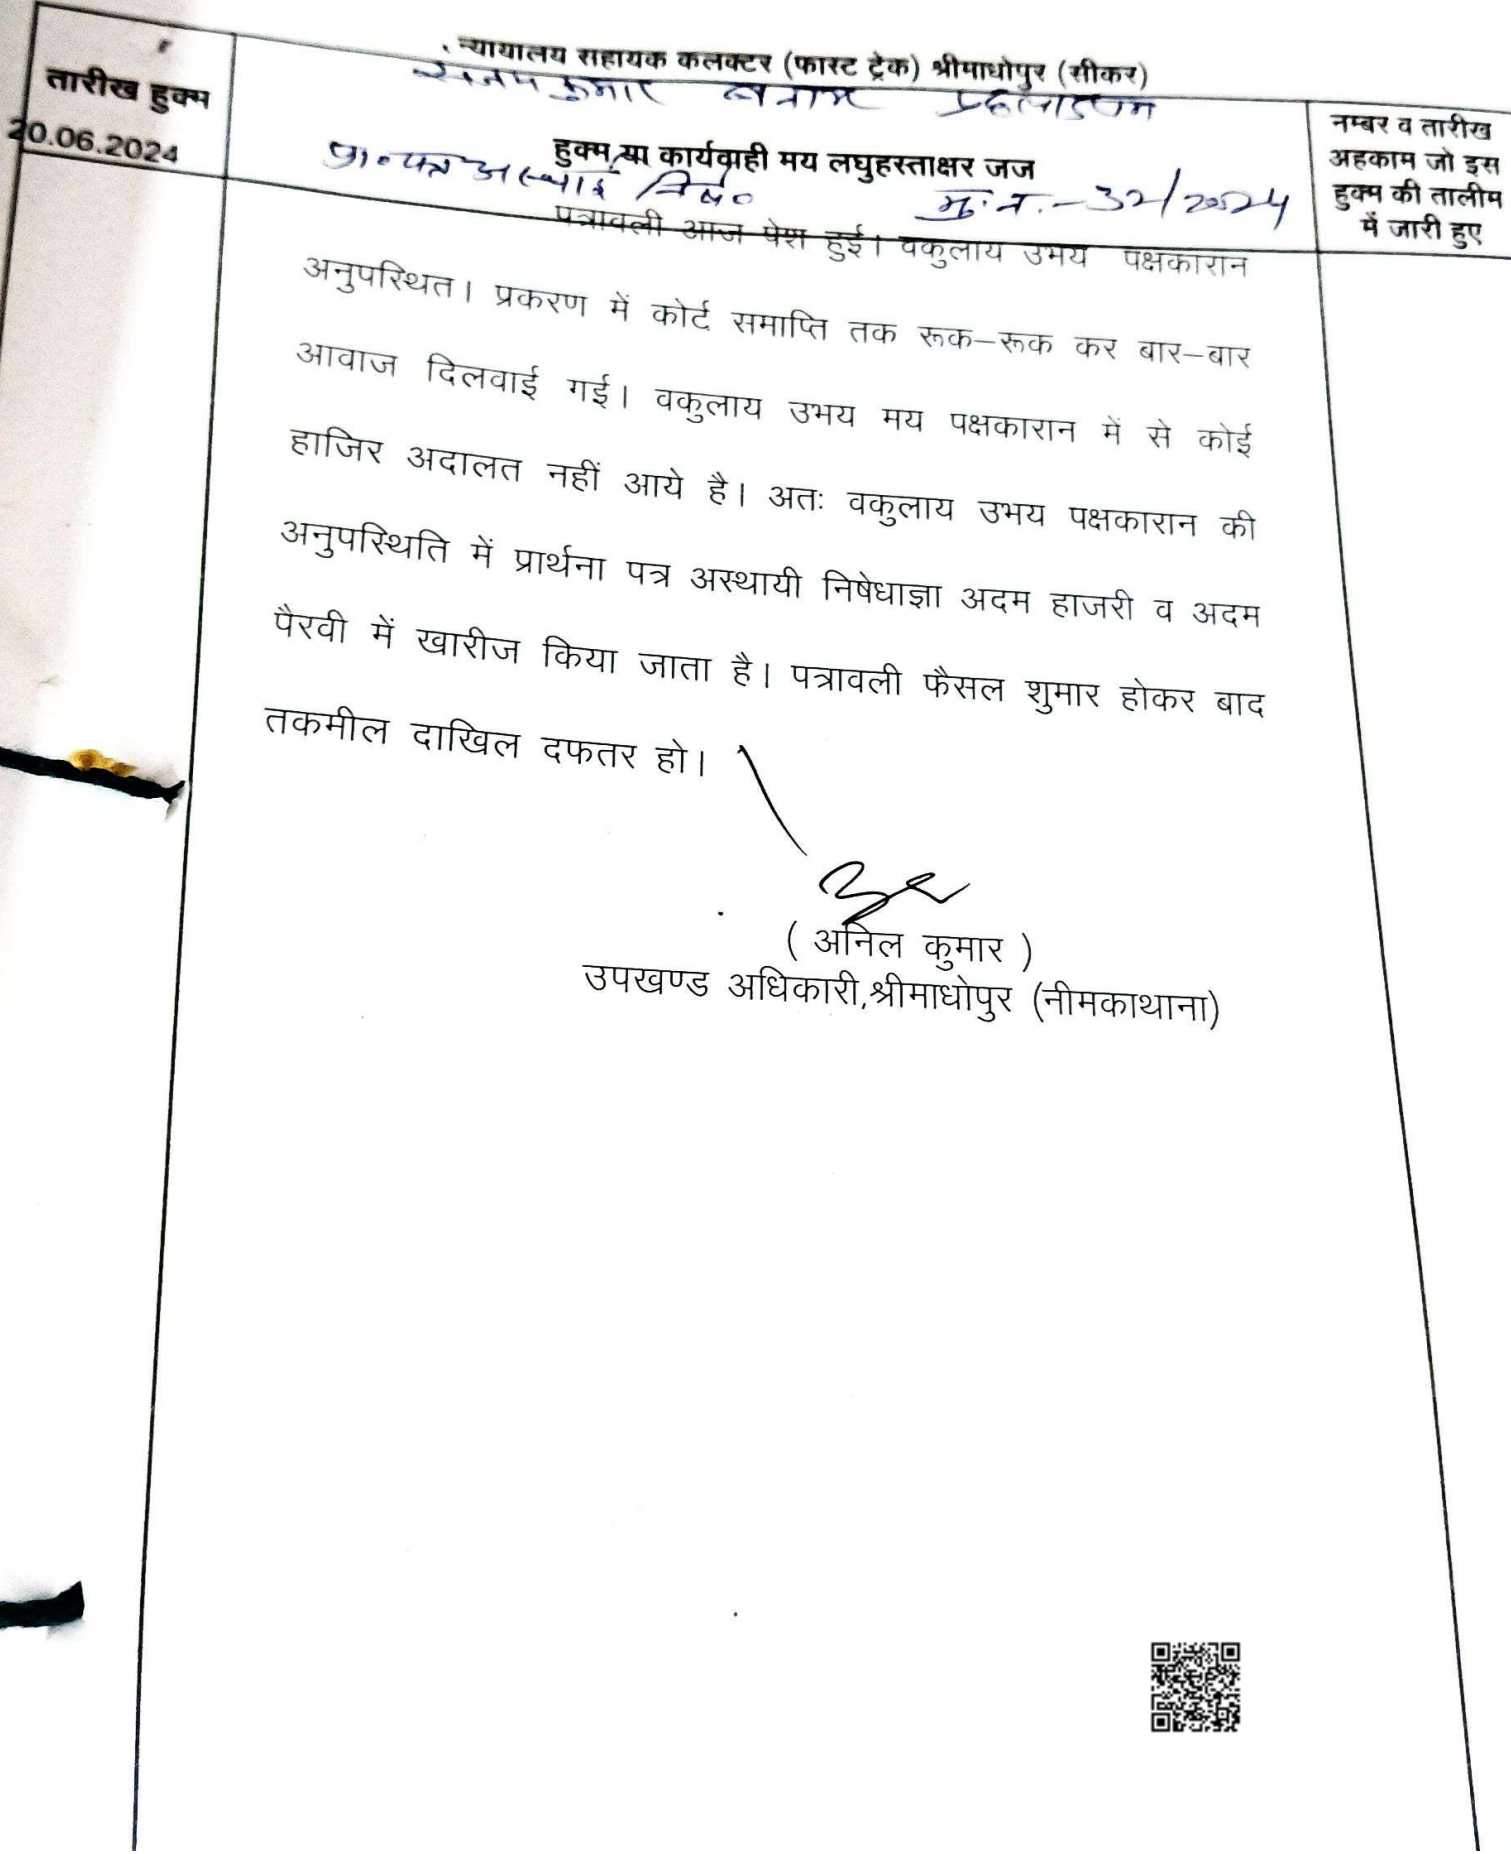 न्यायालय सहायक कलक्टर (फास्ट ट्रेक) श्रीमाधोपुर (सीकर)
कुमार बनाम
तारीख हुक्म
20.06.2024
हुक्म या कार्यवाही मय लघुहस्ताक्षर जज
प्रा०पत्र अस्थाई निषे०
मु.न.-32/2024
नम्बर व तारीख
अहकाम जो इस
हुक्म की तालीम
में जारी हुए
पत्रावली आज पेश हुई। वकुलाय उभय पक्षकारान
अनुपस्थित। प्रकरण में कोर्ट समाप्ति तक रूक–रूक कर बार–बार
आवाज दिलवाई गई। वकुलाय उभय मय पक्षकारान में से कोई
हाजिर अदालत नहीं आये है। अतः वकुलाय उभय पक्षकारान की
अनुपस्थिति में प्रार्थना पत्र अस्थायी निषेधाज्ञा अदम हाजरी व अदम
पैरवी में खारीज किया जाता है। पत्रावली फैसल शुमार होकर बाद
तकमील दाखिल दफतर हो।
( अनिल कुमार )
उपखण्ड अधिकारी,श्रीमाधोपुर (नीमकाथाना)